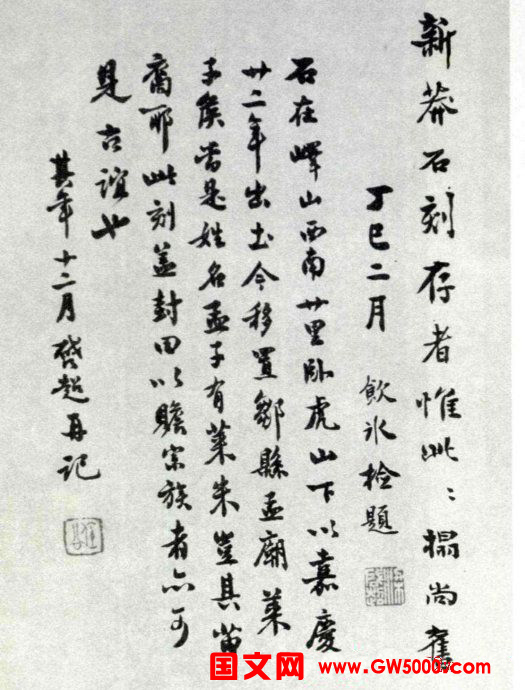 新莽石刻存者惟此〻搨尚舊
丁巳二月 飲冰檢題
石在嶧山西南廿里卧虎山下以嘉慶
廿二年出土今移置鄒縣孟廟萊
子矦當是姓名孟子有萊朱豈其苗
裔耶此刻蓋封田以贍宗族者亦可
見古誼也
其年十二月啓超再記
国文网 www.GW5000.com